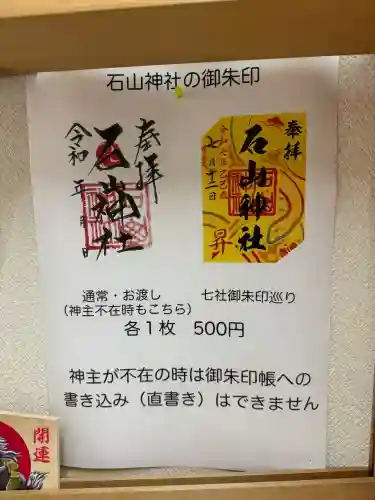 石山神社の御朱印
奉拝
石山神社
令和 年 月 日
奉拝
石山神社
七月十二日
昇
通常・お渡し
(神主不在時もこちら)
七社御朱印巡り
各1枚 500円
神主が不在の時は御朱印帳への
書き込み(直書き)はできません
開運